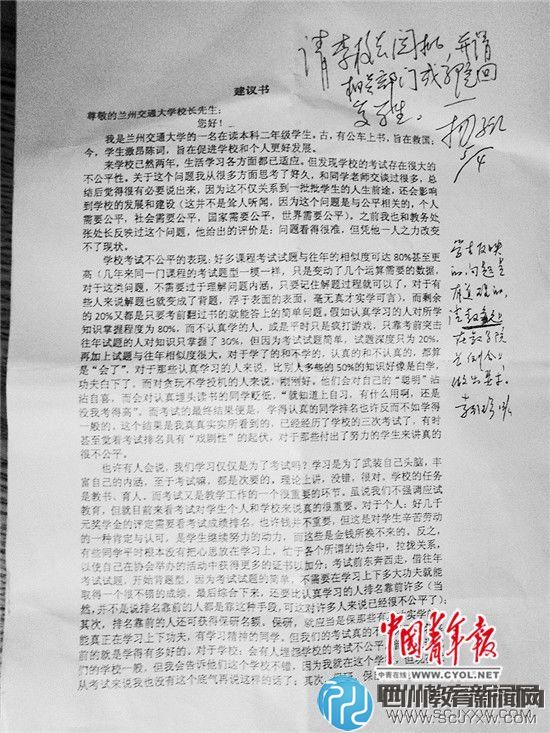 请李校长阅批，并请
相关部门或
建议书
尊敬的兰州交通大学校长先生：
您好！
我是兰州交通大学的一名在读本科二年级学生。古，有公车上书，旨在救国；
今，学生激昂陈词，旨在促进学校和个人更好发展。
来学校已然两年，生活学习各方面都已适应。但发现学校的考试存在很大的
不公平性。关于这个问题我从很多方面思考了好久，和同学老师交谈过很多。总
结后觉得很有必要说出来，因为这不仅关系到一批批学生的人生前途，还会影响
到学校的发展和建设（这并不是耸人听闻，因为这个问题是与公平相关的，个人
需要公平，社会需要公平，国家需要公平，世界需要公平）。之前我也和教务处
张处长反映过这个问题，他给出的评价是：问题看得很准，但凭他一人之力改变
不了现状。
学校考试不公平的表现：好多课程考试试题与往年的相似度可达 80%甚至更
高（几年来同一门课程的考试题型一模一样，只是变动了几个运算需要的数据，
对于这类问题，不需要过于理解问题内涵，只要记住解题过程就可以了，对于有
些人来说解题也就变成了背题，浮于表面的表面，毫无真才实学可言），而剩余
的 20%又都是只要考前翻过书的就能答上的简单问题。假如认真学习的人对所学
知识掌握程度为 80%，而不认真学的人，或是平时只是疯打游戏，只靠考前突击
往年试题的人对知识只掌握了 30%，但因为考试试题简单，试题深度只为 20%，
再加上试题与往年相似度很大。对于学了的和不学的，认真的和不认真的，都算
是“会了”，对于那些认真学习的人来说，比别人多些的 50%的知识好像是白学，
功夫白下了。而对贪玩不学投机的人来说，刚刚好。他们会对自己的“聪明”沾
沾自喜，而会对认真埋头读书的同学贬低，“就知道上自习，有什么用啊，还是
没我考得高”。而考试的最终结果便是，学得认真的同学排名也许反而不如学得
一般的。这个结果是我真真实实所看到的，已经经历了学校的三次考试了，有时
甚至觉着考试排名具有“戏剧性”的起伏，对于那些付出了努力的学生来讲真的
很不公平。
也许有人会说，我们学习仅仅是为了考试吗？学习是为了武装自己头脑，丰
富自己的内涵，至于考试嘛，都是次要的。理论上讲，没错，很对，学校的任务
是教书、育人。而考试又是教学工作的一个很重要的环节。虽说我们不强调应试
教育，但就目前来看考试对学生个人和学校来说真的很重要。对于个人：好几千
元奖学金的评定需要看考试成绩排名，也许钱并不重要，但这是对学生辛苦劳动
的一种肯定与认可，是学生继续努力的动力，而这些是金钱所换不来的。反之，
有些同学平时根本没有把心思放在学习上，忙于各个所谓的协会中，拉拢关系，
以使自己在协会举办的活动中获得更多的证书以加分；考试前东奔西走，借往年
考试试题，开始背题型，因为考试试题的简单，不需要在学习上下多大功夫就能
取得一个很不错的成绩，最后综合下来，还要比认真学习的人排名靠前许多（当
然，并不是说排名靠前的人都是靠这种手段，可这对许多人来说已经很不公平了）；
其次，排名靠前的人还可获得保研名额。保研，就应当是保那些有真实学
能真正在学习上下功夫，有学习精神的同学。但我们的考试真的不
前的就是学得有多好的。对于学校：会有人埋怨学校的考试
们的学校一般，但我会告诉他们这个学校不错，因为我就在这个学
从考试来说我也没有这个底气再说这样的话了；其次，保研，保
学生反映
的问题是
有道理的，
中国青年报
中青在线 WWW.CYOL.NET
四川教育新闻网
WWW.SCJYXW.COM